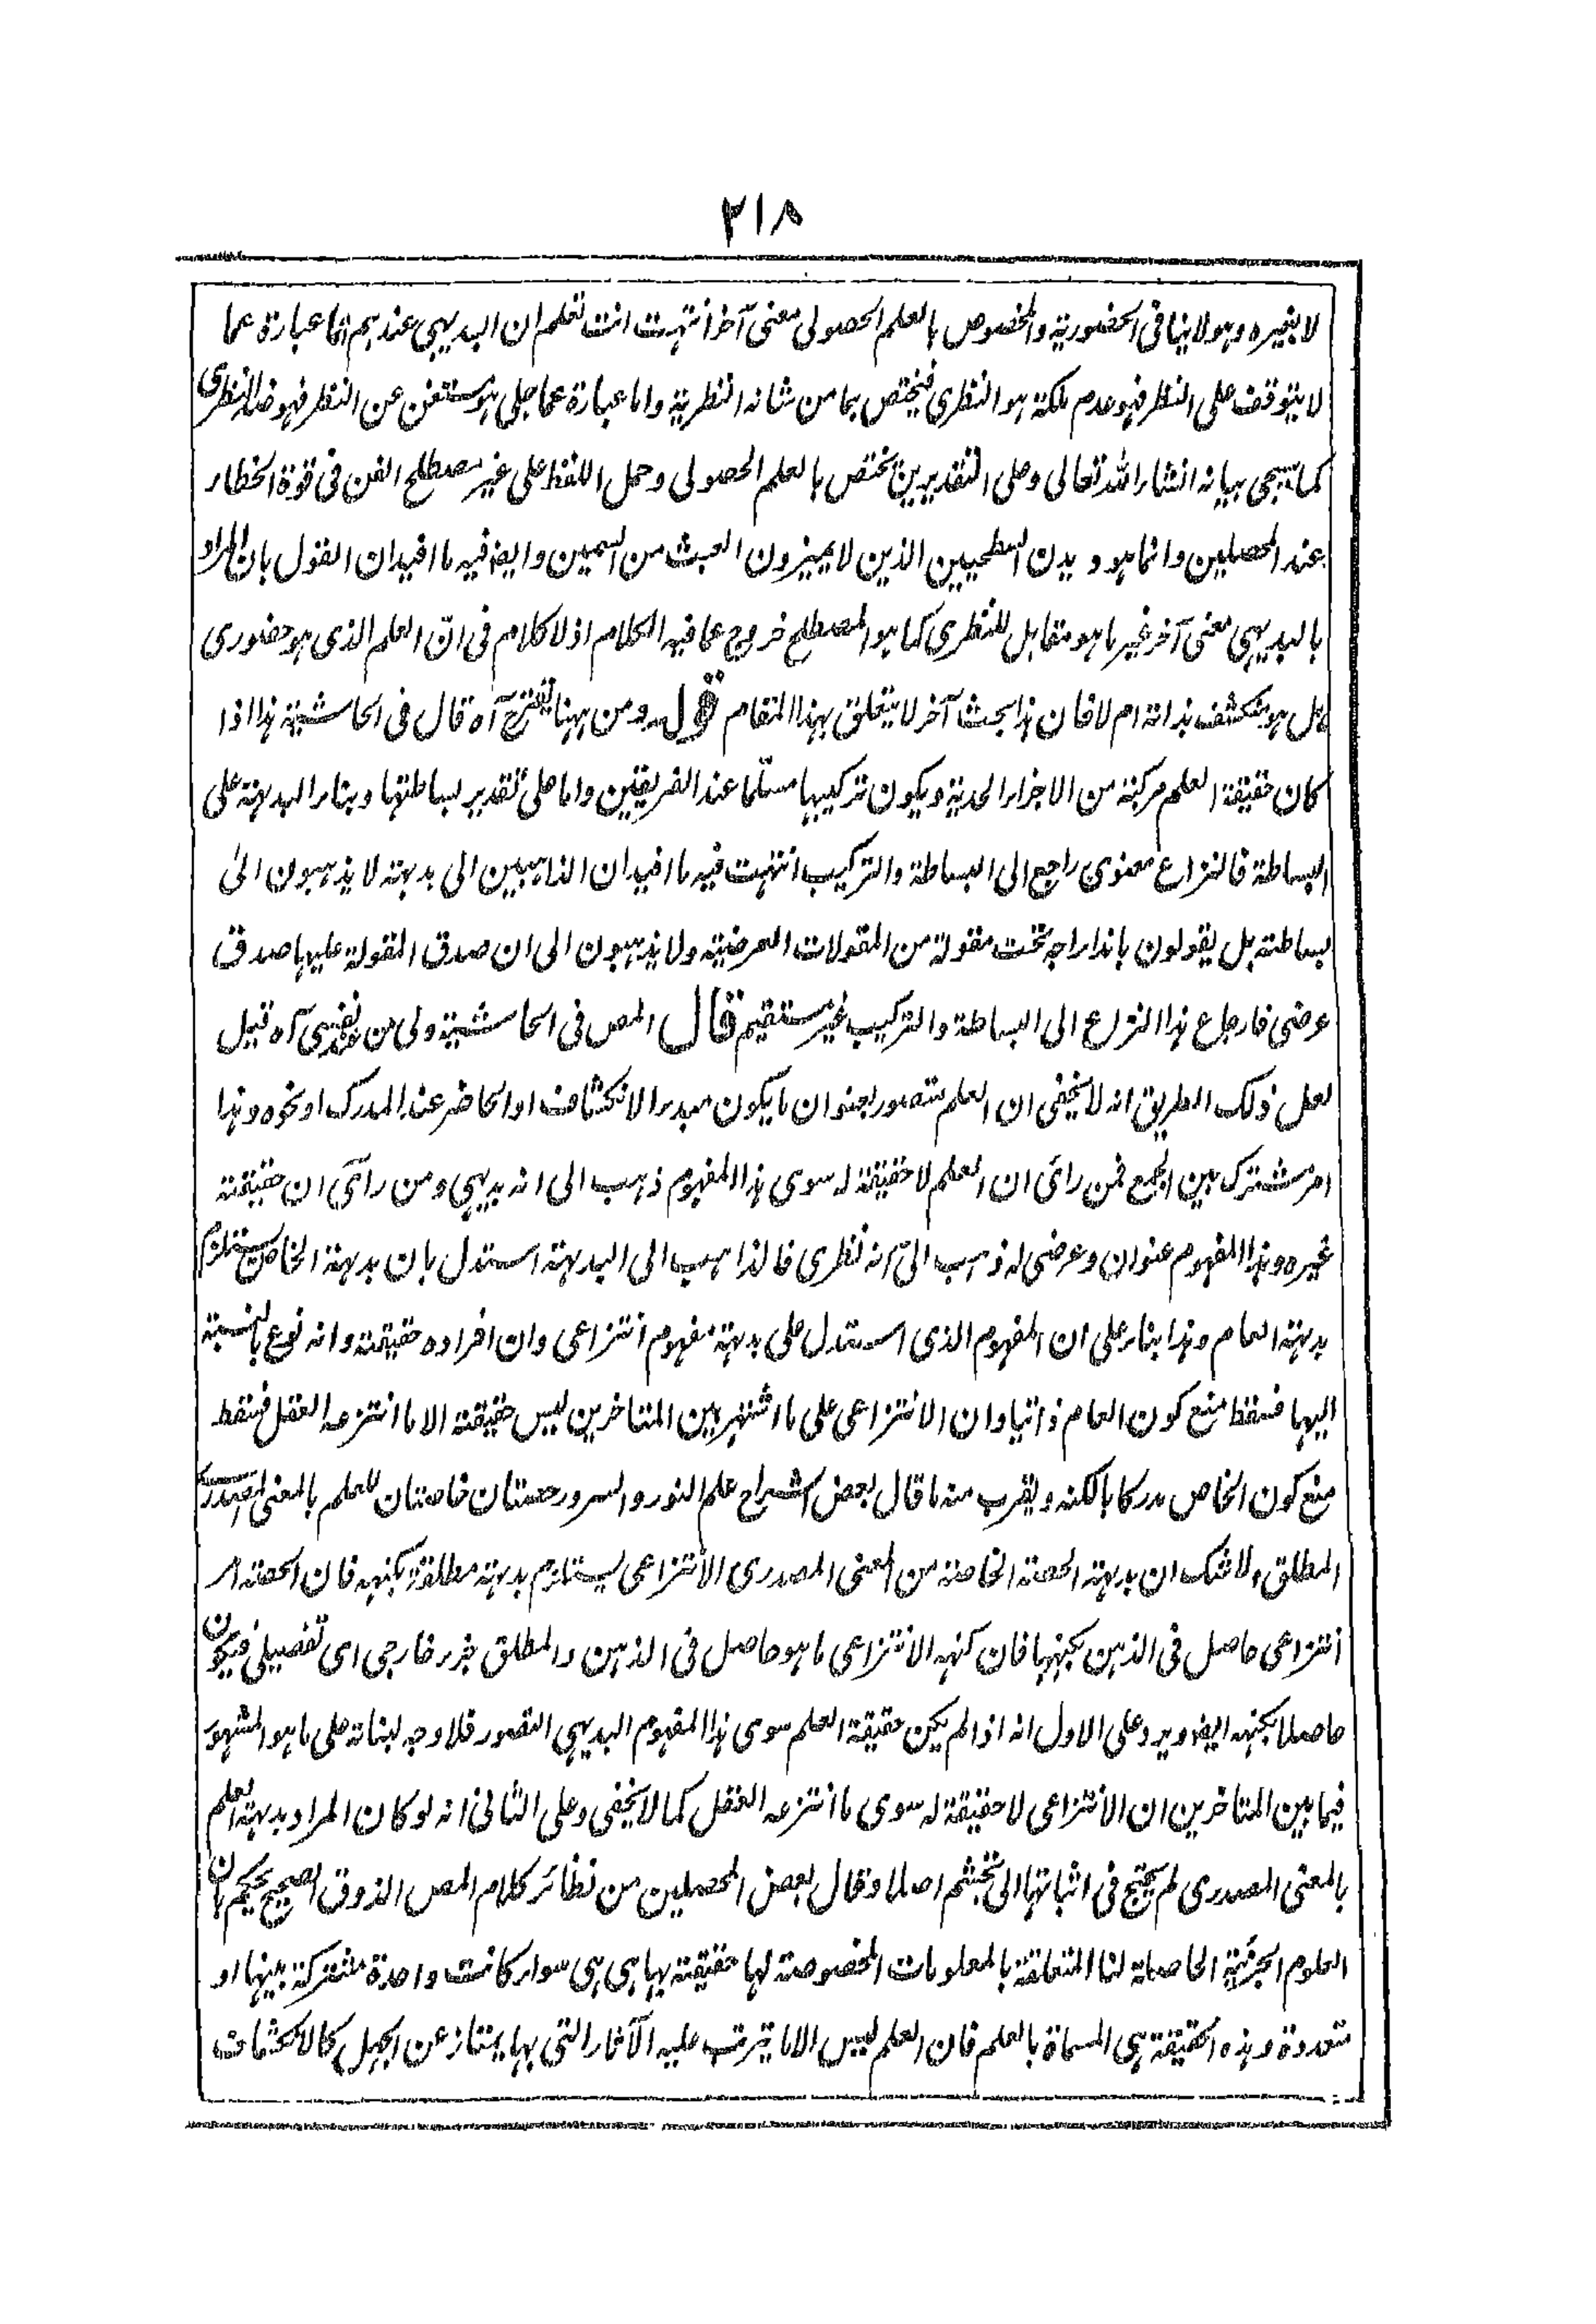 ٢١٨
لا بغيره وهو لا ينافي الحضورية والمخصوص بالعلم الحصولي معنى آخر انتهت انت تعلم ان البديهي عندهم اما عبارة عما
لا يتوقف على النظر فهو عدم ملكة هو النظري فيختص بما من شانه النظرية واما عبارة عما جلي هو مستغن عن النظر فهو ضد النظري
كما سيجي بيانه انشاء الله تعالى وعلى التقديرين يختص بالعلم الحصولي وحمل اللفظ على غير مصطلح الفن في قوة الخطاء
عند المحصلين وانما هو ديدن السطحيين الذين لا يميزون الغث من السمين وايضا فيه ما افيد ان القول بان المراد
بالبديهي معنى آخر غير ما هو مقابل للنظري كما هو المصطلح خروج عما فيه الكلام اذ لا كلام في انّ العلم الذي هو حضوري
بل هو منكشف بذاته ام لا فان هذا بحث آخر لا يتعلق بهذا المقام قوله ومن ههنا يقترح آه قال في الحاشية هذا اذا
كان حقيقة العلم مركبة من الاجزاء الحدية ويكون تركيبها مسلّما عند الفريقين واما على تقدير بساطتها وبناء البديهة على
البساطة فالنزاع معنوي راجع الى البساطة والتركيب انتهت فيه ما افيد ان الذاهبين الى بدهته لا يذهبون الى
بساطته بل يقولون باندراجه تحت مقولة من المقولات العرضية ولا يذهبون الى ان صدق المقولة عليها صدق
عرضي فارجاع هذا النزاع الى البساطة والتركيب غير مستقيم قال المص في الحاشية ولي من نفسي آه قيل
لعل ذلك الطريق انه لا يخفى ان العلم متصور بعنوان ما يكون مبدء الانكشاف او الحاضر عند المدرك او نحوه وهذا
امر مشترك بين الجميع فمن رأى ان العلم لا حقيقة له سوى هذا المفهوم ذهب الى انه بديهي ومن رآى ان حقيقته
غيره وهذا المفهوم عنوان وعرضي له ذهب الى انه نظري فالذاهب الى البديهة استدل بان بدهة الخاص مستلزم
بدهة العام وهذا بناء على ان المفهوم الذي استدل على بدهته مفهوم انتزاعي وان افراده حقيقة وانه نوع بالنسبة
اليها فسقط منع كون العام ذاتيا وان الانتزاعي على ما اشتهر بين المتاخرين ليس حقيقته الا ما انتزعه العقل فسقط
منع كون الخاص مدركا بالكنه ويقرب منه ما قال بعض الشراح علم النور والسرور حصتان خاصتان للعلم بالمعنى المصدري
المطلق ولا شك ان بدهة الحصة الخاصة من المعنى المصدري الانتزاعي يستلزم بدهة مطلقه بكنهه فان الحصة امر
انتزاعي حاصل في الذهن بكنهها فان كنهه الانتزاعي ما هو حاصل في الذهن والمطلق جزء خارجي اى تفصيلي فيكون
حاصلا بكنهه ايضا ويرد على الاول انه اذا لم يكن حقيقة العلم سوى هذا المفهوم البديهي التصور فلا وجه لبنائه على ما هو المشهور
فيما بين المتاخرين ان الانتزاعي لا حقيقة له سوى ما انتزعه العقل كما لا يخفى وعلى الثاني انه لو كان المراد بدهة العلم
بالمعنى المصدري لم يحتج في اثباتها الى تجشم اصلا وقال بعض المحصلين من نظائر كلام المص الذوق الصحيح يحكم بان
العلوم الجزئية الحاصلة لنا المتعلقة بالمعلومات المخصوصة لها حقيقة بها هي هي سواء كانت واحدة مشتركة بينها او
متعددة وهذه الحقيقة هي المسماة بالعلم فان العلم ليس الا ما يترتب عليه الآثار التي بها يمتاز عن الجهل كالانكشاف